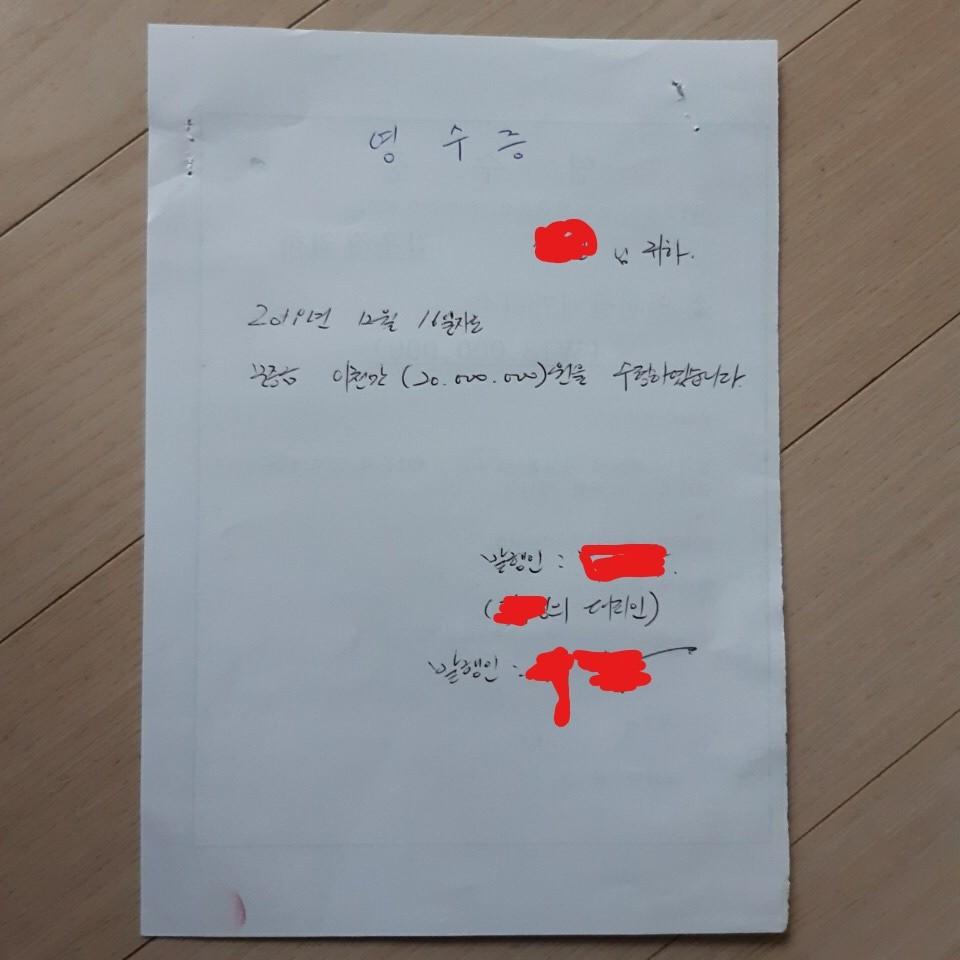 영 수 증
님 귀하.
2019년 12월 16일자로
이천만 (20.000.000)원을 수령하였습니다.
발행인 :
( 의 대리인)
발행인 :